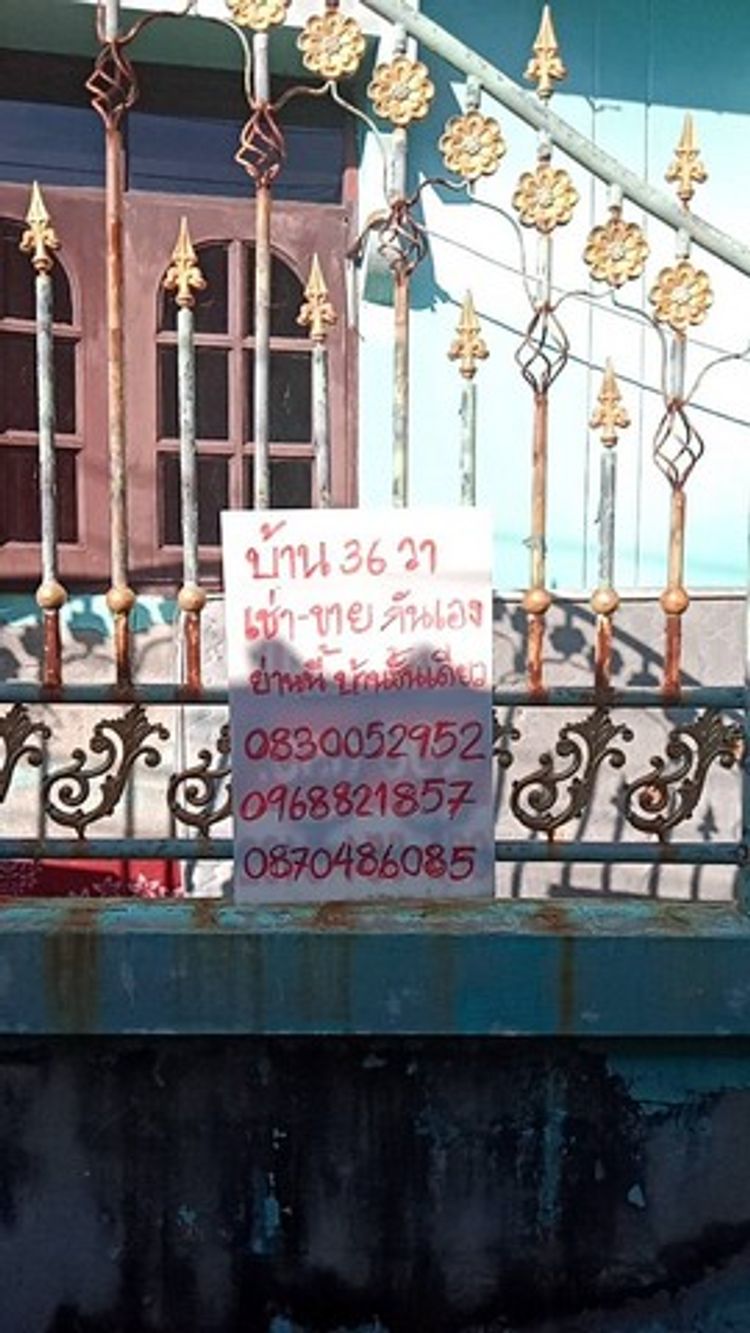 บ้าน 36 วา
เช่า-ขาย กันเอง
ย่านนี้ บ้านชั้นเดียว
0830052952
0968821857
0870486085